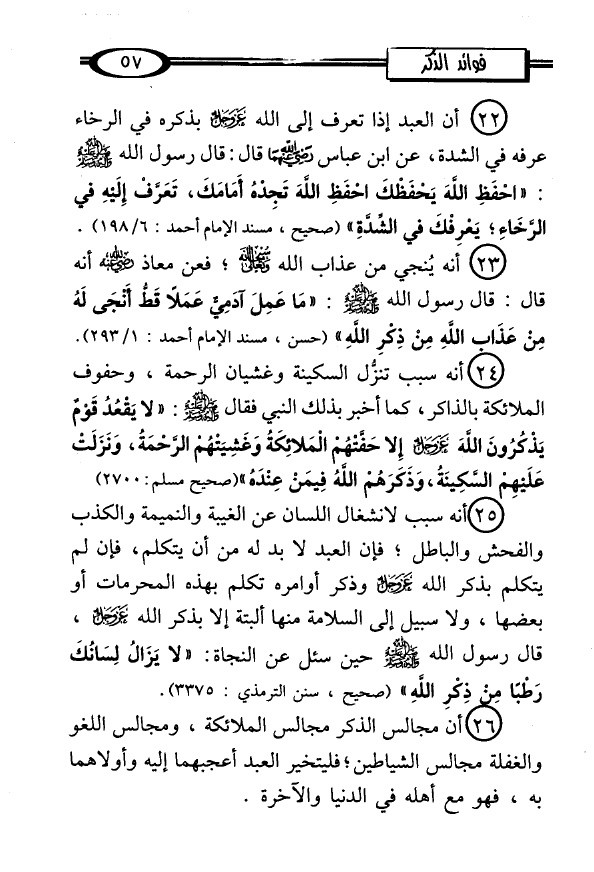 فوائد الذكر
٥٧
٢٢ أن العبد إذا تعرف إلى الله عَزَّوَجَلَّ بذكره في الرخاء
عرفه في الشدة، عن ابن عباس رَضِيَ اللَّهُ عَنْهُمَا قال: قال رسول الله ﷺ
: «احْفَظِ اللَّهَ يَحْفَظْكَ احْفَظِ اللَّهَ تَجِدْهُ أَمَامَكَ، تَعَرَّفْ إِلَيْهِ في
الرَّخَاءِ؛ يَعْرِفْكَ في الشِّدَّةِ» (صحيح ، مسند الإمام أحمد : ١٩٨/٦) .
٢٣ أنه يُنجي من عذاب الله سُبْحَانَهُ وَتَعَالَى ؛ فعن معاذ رَضِيَ اللَّهُ عَنْهُ أنه
قال : قال رسول الله ﷺ : «مَا عَمِلَ آدَمِيٌّ عَمَلًا قَطُّ أَنْجَى لَهُ
مِنْ عَذَابِ اللَّهِ مِنْ ذِكْرِ اللَّهِ» (حسن ، مسند الإمام أحمد : ٢٩٣/١).
٢٤ أنه سبب تنزُّل السكينة وغشيان الرحمة ، وحفوف
الملائكة بالذاكر، كما أخبر بذلك النبي فقال ﷺ : «لا يَقْعُدُ قَوْمٌ
يَذْكُرُونَ اللَّهَ عَزَّوَجَلَّ إِلا حَفَّتْهُمُ الْمَلائِكَةُ وَغَشِيَتْهُمُ الرَّحْمَةُ، وَنَزَلَتْ
عَلَيْهِمِ السَّكِينَةُ، وَذَكَرَهُمُ اللَّهُ فِيمَنْ عِنْدَهُ»(صحيح مسلم: ٢٧٠٠)
٢٥ أنه سبب لانشغال اللسان عن الغيبة والنميمة والكذب
والفحش والباطل ؛ فإن العبد لا بد له من أن يتكلم، فإن لم
يتكلم بذكر الله عَزَّوَجَلَّ وذكر أوامره تكلم بهذه المحرمات أو
بعضها ، ولا سبيل إلى السلامة منها ألبتة إلا بذكر الله عَزَّوَجَلَّ ،
قال رسول الله ﷺ حين سئل عن النجاة: «لا يَزَالُ لِسَانُكَ
رَطْبًا مِنْ ذِكْرِ اللَّهِ» (صحيح ، سنن الترمذي : ٣٣٧٥).
٢٦ أن مجالس الذكر مجالس الملائكة ، ومجالس اللغو
والغفلة مجالس الشياطين؛ فليتخير العبد أعجبهما إليه وأولاهما
به ، فهو مع أهله في الدنيا والآخرة .